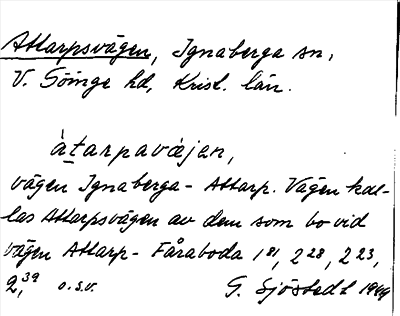 Attarpsvägen, Ignaberga sn,
V. Göinge hd, Krist. län.
àtarpavájen,
vägen Ignaberga - Attarp. Vägen kal-
las Attarpsvägen av dem som bo vid
vägen Attarp - Fåraboda 1⁸¹, 2²⁸, 2²³,
2,³⁹ o.s.v. G. Sjöstedt 1949